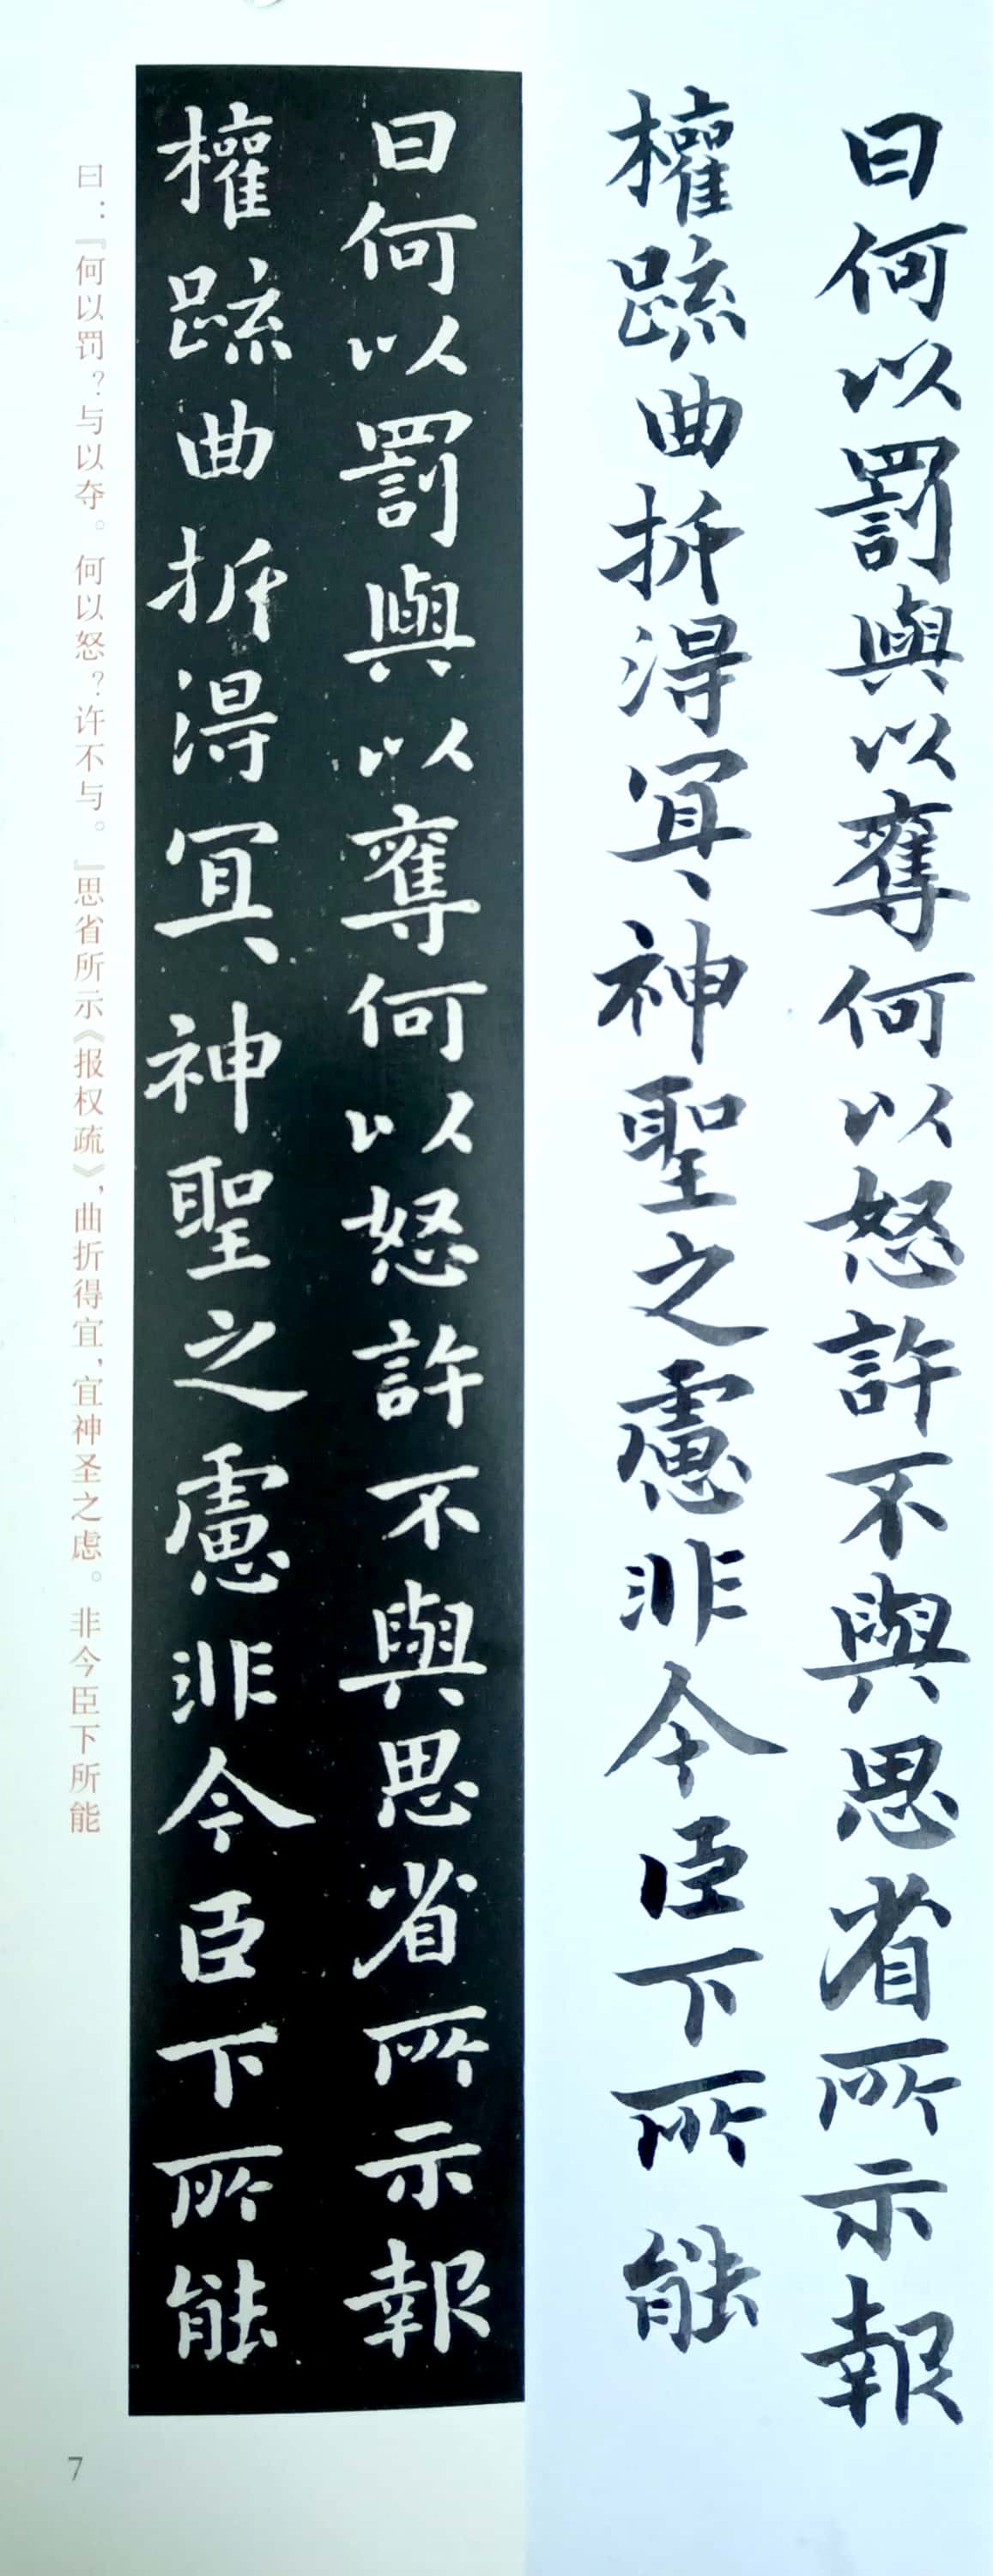 曰何以罰與以奪何以怒許不與思省所示報
權疏曲折得冝〻神聖之慮非今臣下所能
曰何以罰與以奪何以怒許不與思省所示報
權疏曲折得冝〻神聖之慮非今臣下所能
曰：『何以罚？与以夺。何以怒？许不与。』思省所示《报权疏》，曲折得宜，宜神圣之虑。非今臣下所能
7